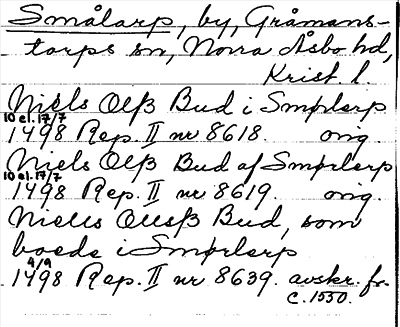 Smålarp, by, Gråmans-
torps sn, Norra Åsbo hd,
Krist. l.
Niels Olß Bud i Smørlerp
10 el. 17/7
1498 Rep. II nr 8618. orig.
Niels Olß Bud af Smørlerp
10 el. 17/7
1498 Rep. II nr 8619. orig.
Nielss Olssß Bud, som
boede i Smørlerp
4/9
1498 Rep. II nr 8639. avskr. fr.
c. 1550.